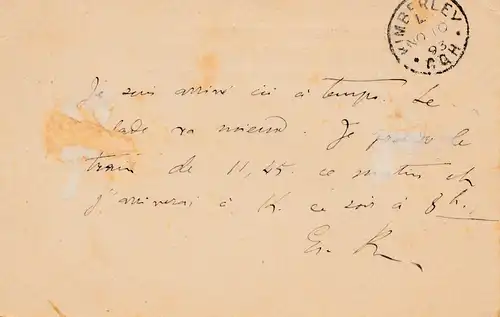 KIMBERLEY
L
NO 10
93
CGH
Je suis arrivé ici à temps. Le
lade va mieux. Je prends le
train de 11,25 ce matin et
j'arriverai à K. ce soir à 8 h.